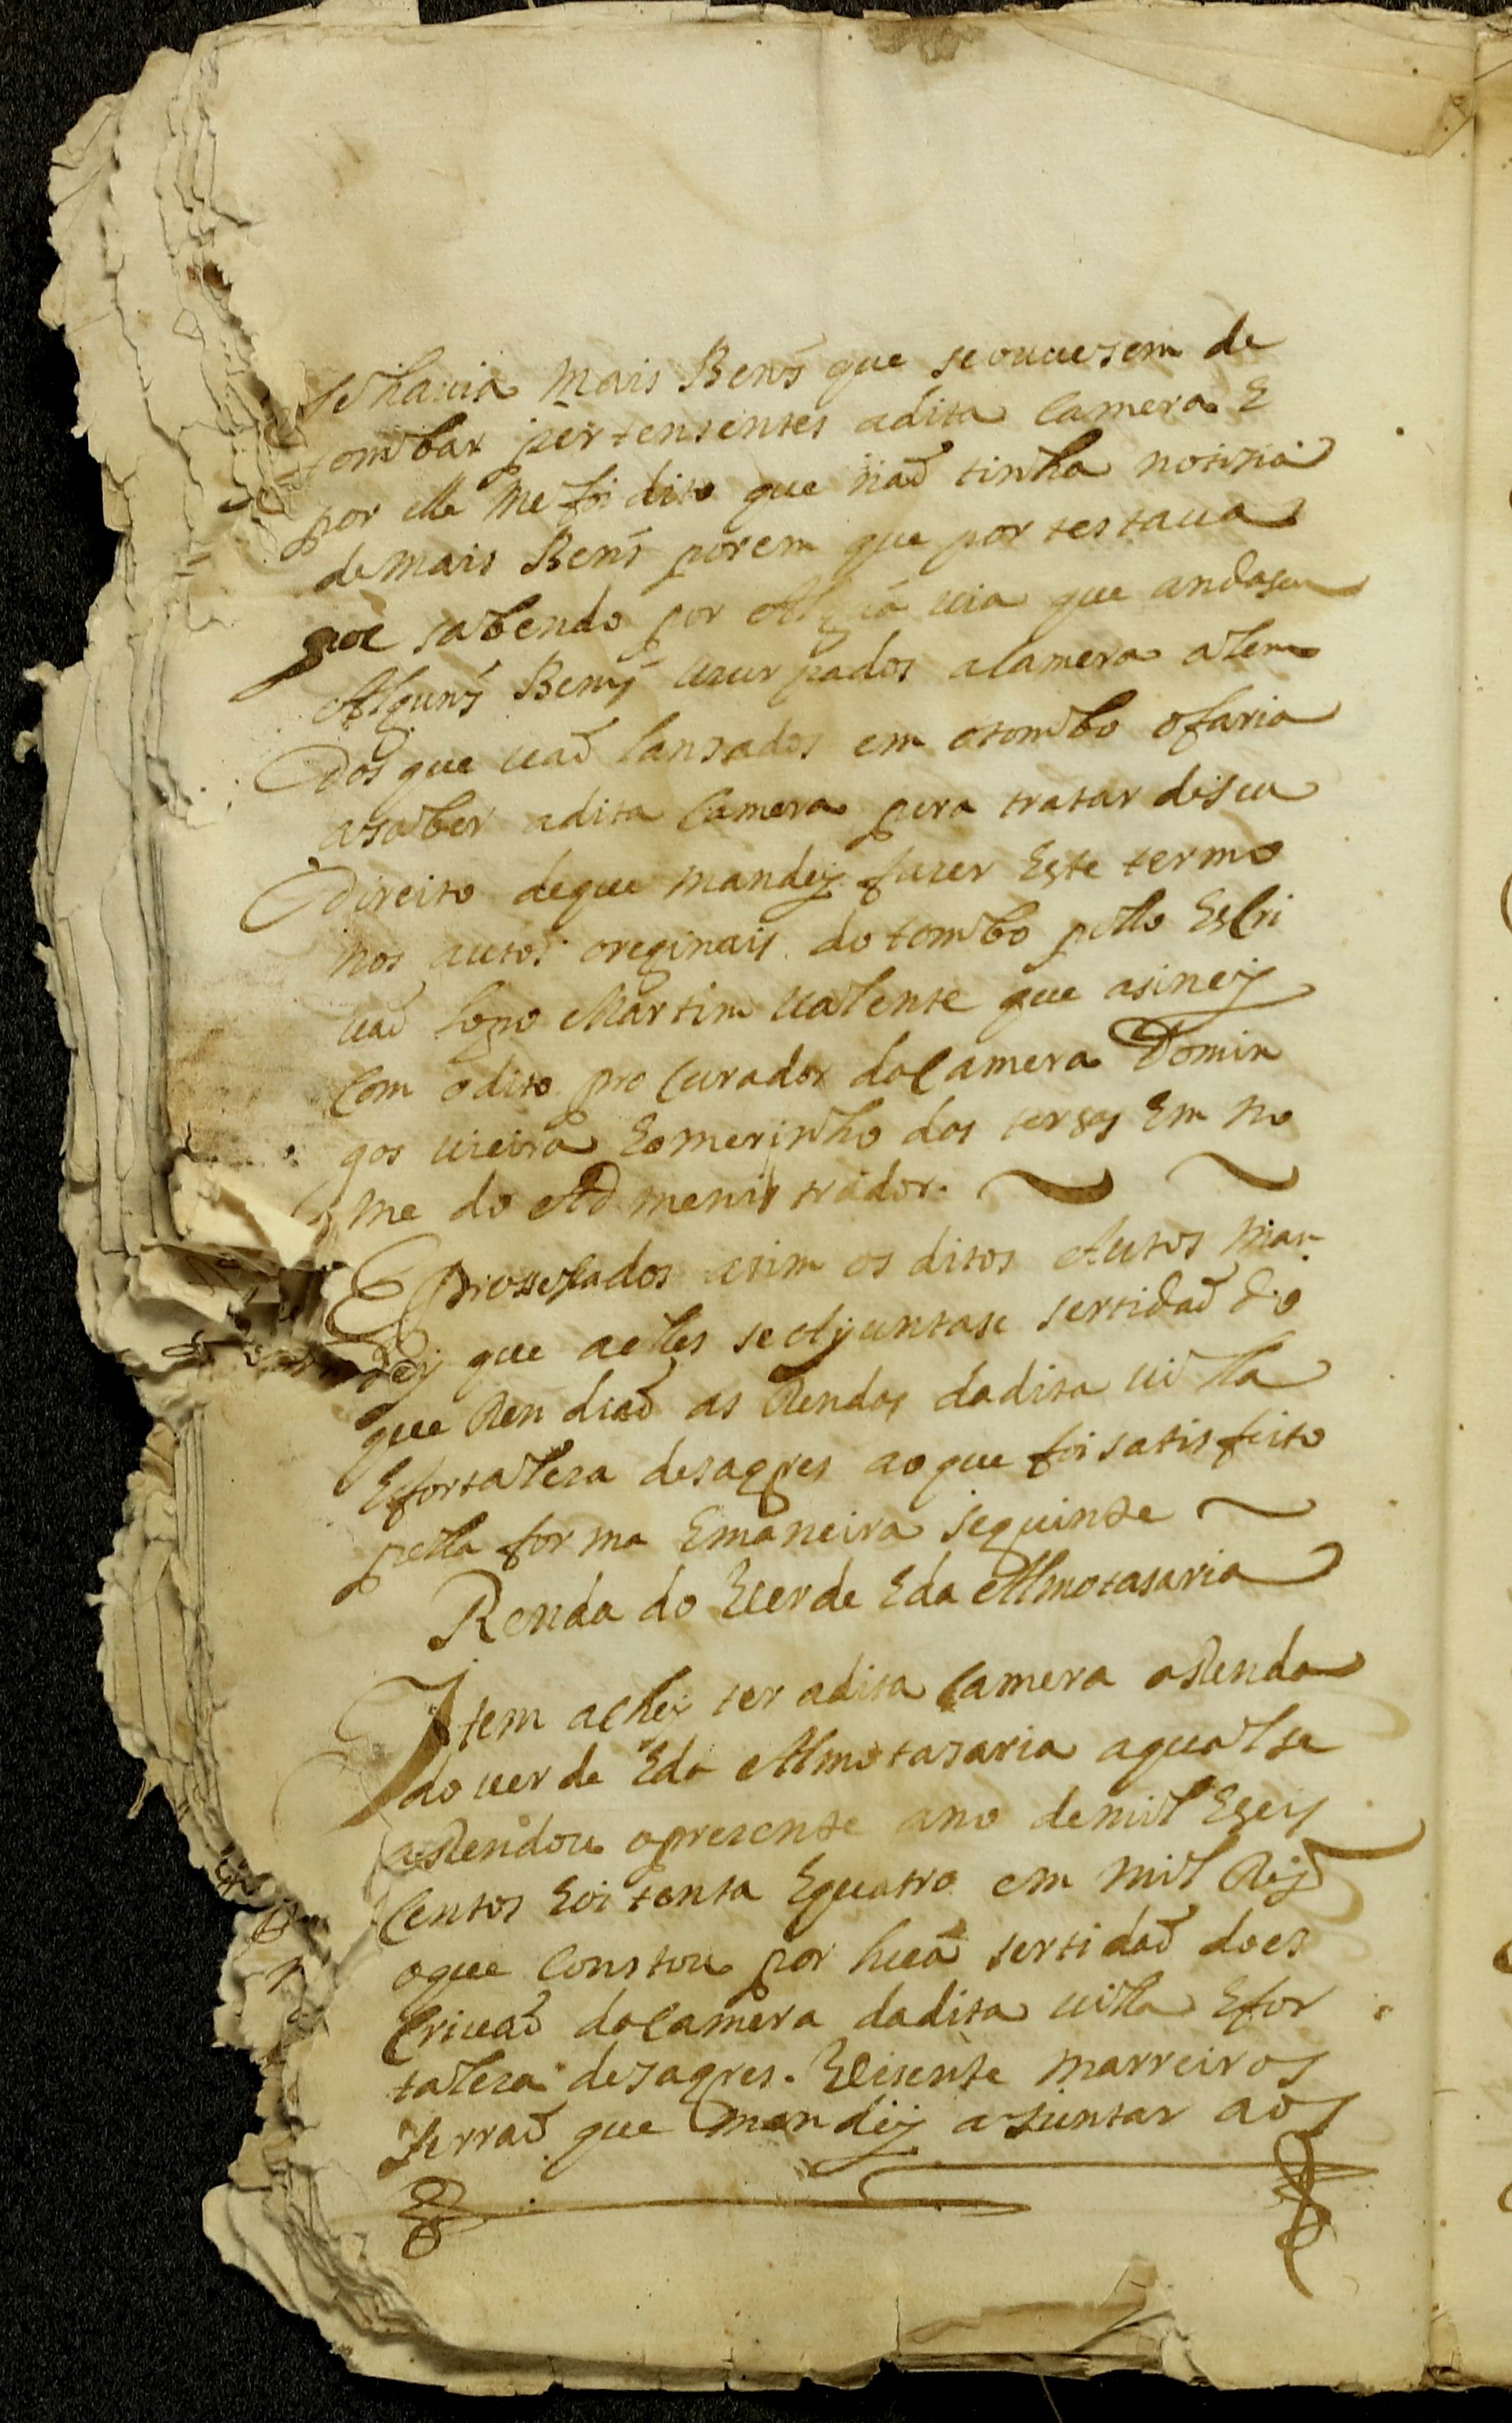 se hauia mais Bens que se ouuesem de
tombar pertensentes a dita Camera E
por elle me foi dito que naõ tinha notisia
de mais Bens porem que portestaua
que sabendo por Alguã uia que andasem
Alguns Bens uzurpados a Camera alem
dos que uaõ lansados em o tombo o faria
a saber a dita Camera pera tratar de seu
Direito de que mandey fazer Este termo
nos autos oreginais do tombo pello Escri
uaõ Lopo Martim Ualente que asiney
Com o dito procurador da Camera Domin
gos uieira E o meirinho das tersas Em no
me do Admenistrador
E Prosesados asim os ditos Autos man
dey que a elles se Ajuntase sertidaõ do
que Rendiaõ as Rendas da dita uilla
E fortaleza de sagres ao que foi satisfeito
pella forma E maneira seguinte
Renda do Uerde E da Almotasaria
Item achey ter a dita Camera a Renda
do uerde E da Almotasaria a qual se
aRendou o prezente ano de mil E seis
Centos E oitenta E quatro em mil Reis
o que Constou por huã sertidaõ do es
Criuaõ da Camera da dita uilla E for
taleza de sagres. Uisente Marreiros
Serraõ que mandey ajuntar aos